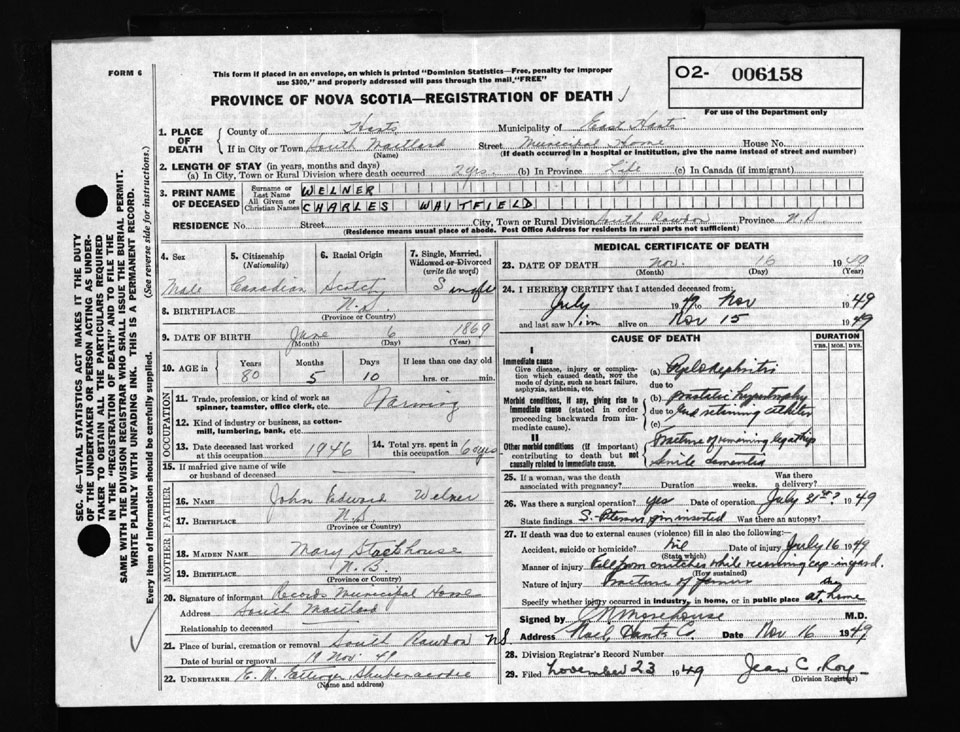 FORM 6
This form if placed in an envelope, on which is printed "Dominion Statistics—Free, penalty for improper
use $300," and properly addressed will pass through the mail, "FREE"
O2- 006158
PROVINCE OF NOVA SCOTIA—REGISTRATION OF DEATH
For use of the Department only
1. PLACE OF DEATH
County of Hants Municipality of East Hants
If in City or Town South Maitland Street Municipal Home House No.
(Name) (If death occurred in a hospital or institution, give the name instead of street and number)
2. LENGTH OF STAY (in years, months and days)
(a) In City, Town or Rural Division where death occurred 2 yrs. (b) In Province Life (c) In Canada (if immigrant)
3. PRINT NAME OF DECEASED
Surname or Last Name WELNER
All Given or Christian Names CHARLES WAITFIELD
RESIDENCE No. Street City, Town or Rural Division South Rawdon Province N.S.
(Residence means usual place of abode. Post Office Address for residents in rural parts not sufficient)
4. Sex
Male
5. Citizenship
(Nationality)
Canadian
6. Racial Origin
Scotch
7. Single, Married,
Widowed or Divorced
(write the word)
Single
8. BIRTHPLACE N.S.
(Province or Country)
9. DATE OF BIRTH June 6 1869
(Month) (Day) (Year)
10. AGE in
Years Months Days If less than one day old
80 5 10 hrs. or min.
OCCUPATION
11. Trade, profession, or kind of work as
spinner, teamster, office clerk, etc.
12. Kind of industry or business, as cotton-
mill, lumbering, bank, etc.
13. Date deceased last worked
at this occupation 1946
14. Total yrs. spent in
this occupation 60 yrs
15. If married give name of wife
or husband of deceased
FATHER
16. NAME John Edward Welner
17. BIRTHPLACE N.S.
(Province or Country)
MOTHER
18. MAIDEN NAME Mary Stackhouse
19. BIRTHPLACE N.B.
(Province or Country)
20. Signature of informant Records Municipal Home
Address South Maitland
Relationship to deceased
21. Place of burial, cremation or removal South Rawdon NS
Date of burial or removal 19 Nov. 49
22. UNDERTAKER E. M. Shubenacadie
(Name and address)
MEDICAL CERTIFICATE OF DEATH
23. DATE OF DEATH Nov. 16 1949
(Month) (Day) (Year)
24. I HEREBY CERTIFY that I attended deceased from:
July 1949 to Nov 1949
and last saw him alive on Nov 15 1949
CAUSE OF DEATH
DURATION
YRS. MOS. DYS.
I
Immediate cause
Give disease, injury or complica-
tion which caused death, NOT the
mode of dying, such as heart failure,
asphyxia, asthenia, etc.
(a) Pyelonephritis
due to
Morbid conditions, if any, giving rise to
immediate cause (stated in order
proceeding backwards from
immediate cause).
(b) Prostatic hypertrophy
due to and retaining catheter
(c)
II
Other morbid conditions (if important)
contributing to death but not
causally related to immediate cause.
Fracture of remaining leg at hip
Senile dementia
25. If a woman, was the death
associated with pregnancy? Duration weeks. Was there
a delivery?
26. Was there a surgical operation? yes Date of operation July 31st? 1949
State findings S. Peterson pin inserted Was there an autopsy?
27. If death was due to external causes (violence) fill in also the following:
Accident, suicide or homicide? Date of injury July 16 1949
(State which)
Manner of injury Fell from crutches while in yard.
(How sustained)
Nature of injury Fracture of femur
Specify whether injury occurred in industry, in home, or in public place at home
Signed by Morehouse M.D.
Address Noel Hants Co Date Nov 16 1949
28. Division Registrar's Record Number
29. Filed November 23 1949 Jean C. Roy
(Division Registrar)
SEC. 46—VITAL STATISTICS ACT MAKES IT THE DUTY
OF THE UNDERTAKER OR PERSON ACTING AS UNDER-
TAKER TO OBTAIN ALL THE PARTICULARS REQUIRED
IN THE "REGISTRATION OF DEATH" AND TO FILE THE
SAME WITH THE DIVISION REGISTRAR WHO SHALL ISSUE THE BURIAL PERMIT.
WRITE PLAINLY WITH UNFADING INK. THIS IS A PERMANENT RECORD.
Every item of information should be carefully supplied. (See reverse side for instructions.)